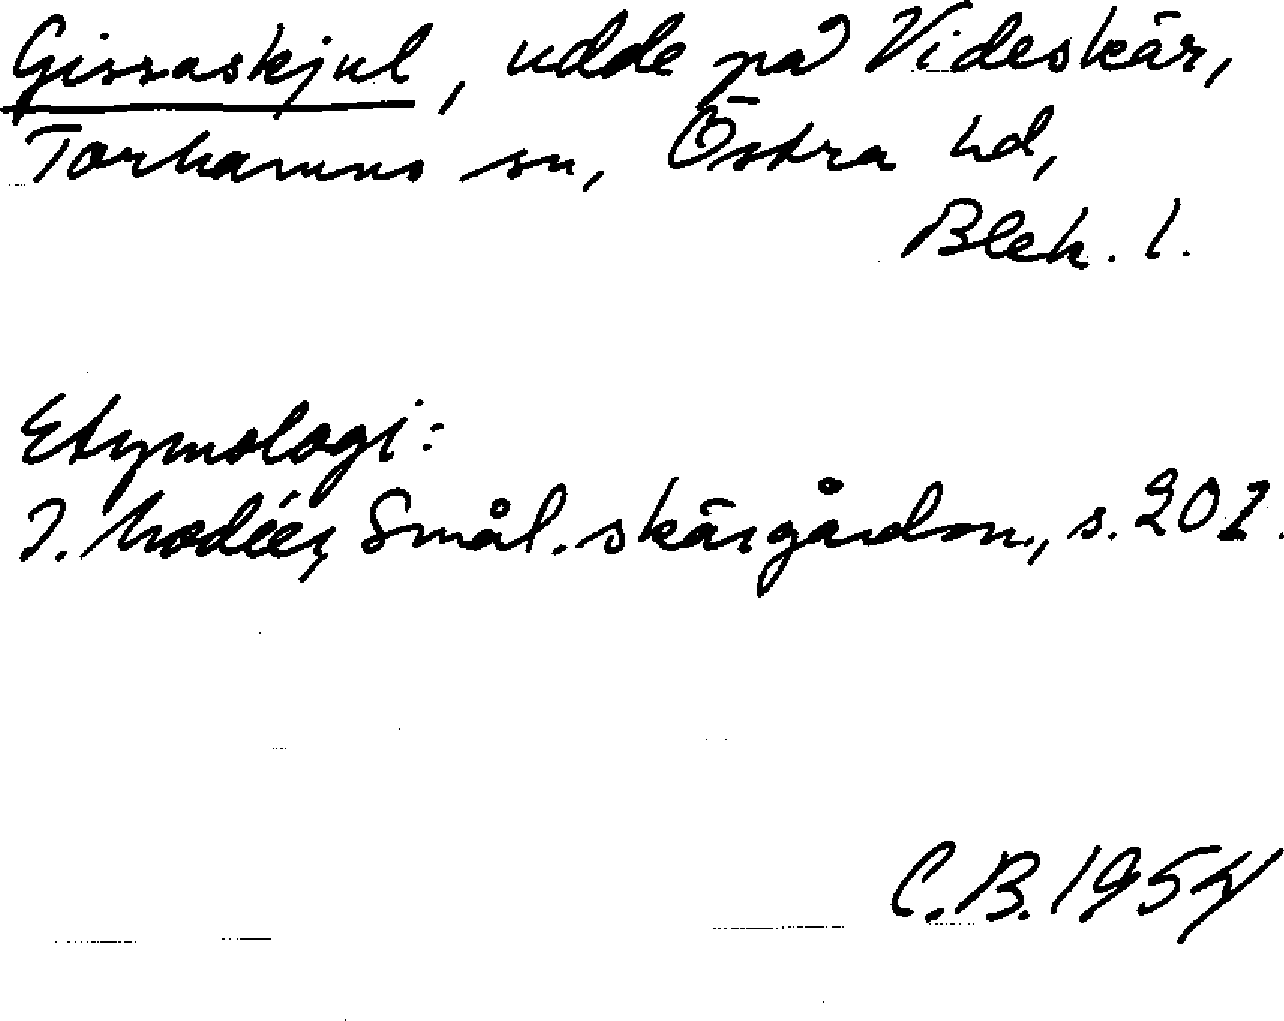 Gissaskjul, udde på Videskär,
Torhamns sn, Östra hd,
Blek. l.
Etymologi:
I. Modéer, Smål. skärgårdsn., s. 202.
C.B. 1954